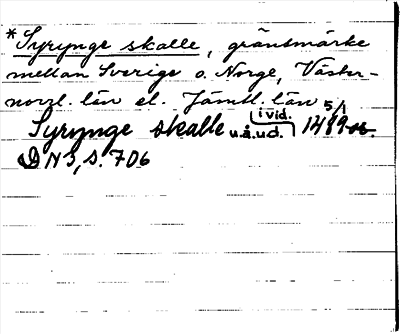 *Syrynge skalle, gränsmärke
mellan Sverige o. Norge, Väster-
norrl. län el. Jämtl. län
Syrynge skalle i vid. u.å.u.d. 5/1 1489
DN 3, s. 706